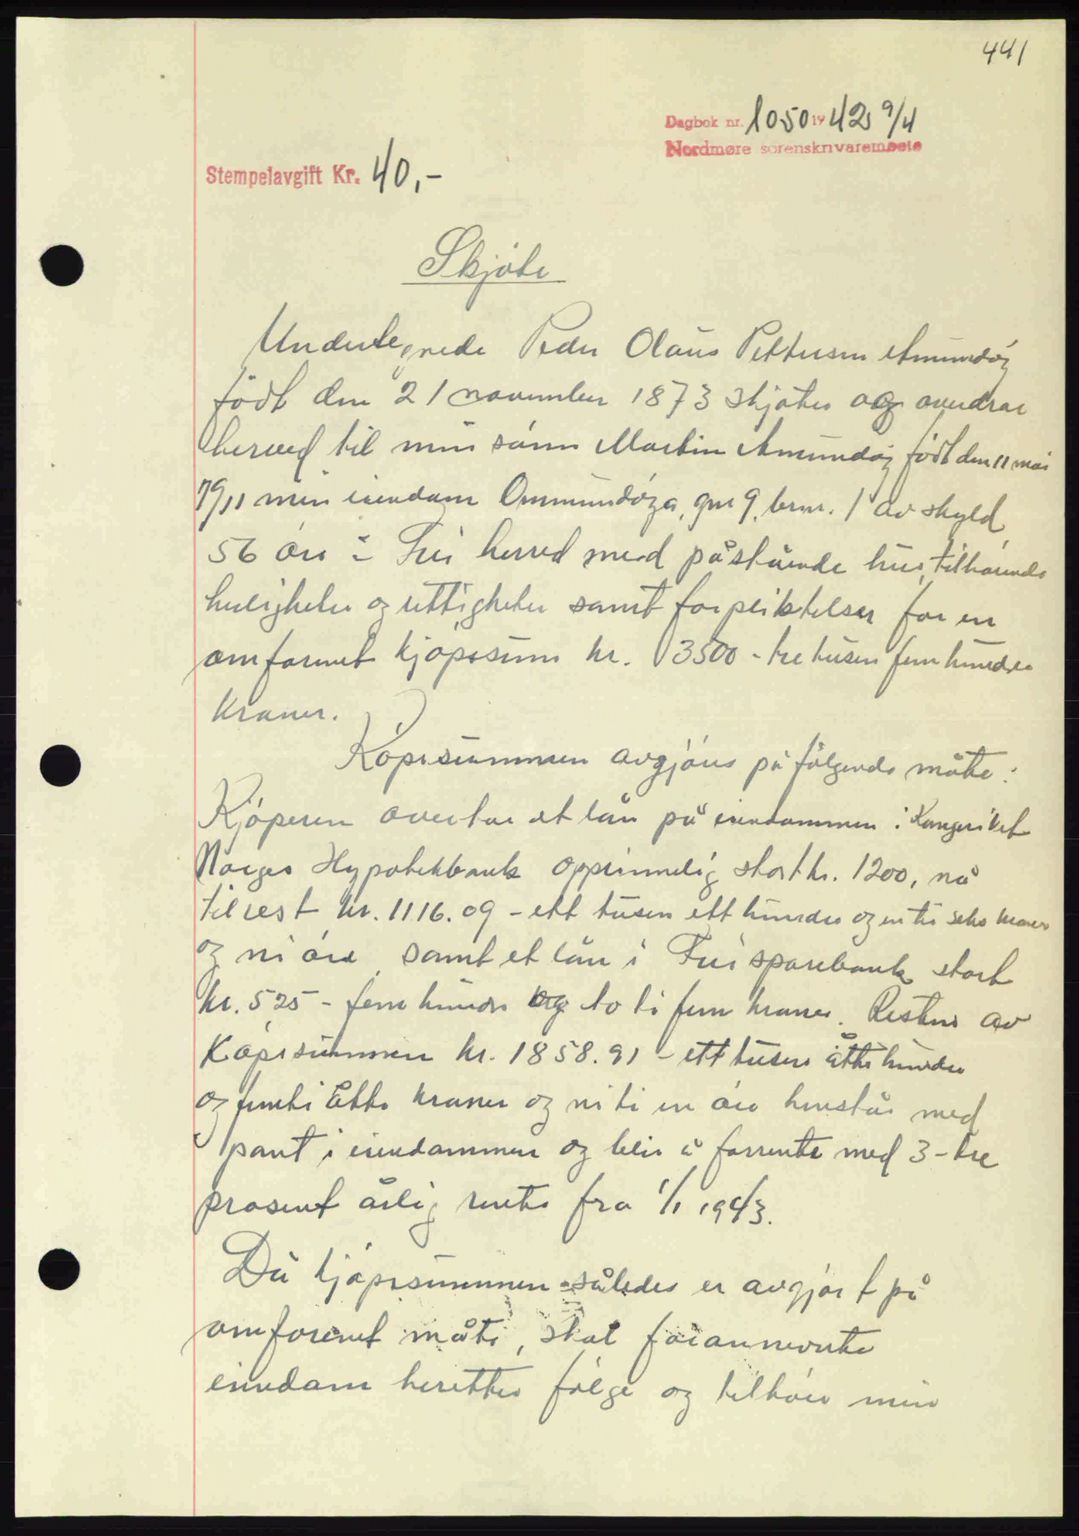 441
Dagbok nr. 1050 1942 9/4
Nordmøre sorenskrivarembete
Stempelavgift Kr. 40,-
Skjöte
Undertegnede Peder Olaus Pettersen Amundöy
födt den 21 november 1873 skjöter og overdrar
herved til min sönn Martin Amundöy födt den 11 mai
1911 min eiendom Ommundöya, gnr 9, brnr. 1 av skyld
56 öre i Frei herred med påstående hus, tilhörende
herligheter og rettigheter samt forpliktelser for en
omforenet kjöpesum kr. 3500 - tre tusen fem hundre
kroner.
Köpesummen avgjöres på fölgende måte:
Kjöperen overtar et lån på eiendommen i Kongeriket
Norges Hypotekbank opprinnelig stort kr. 1200, nå
til rest kr. 1116.09 - ett tusen ett hundre og en ti seks kroner
og ni öre samt et lån i Frei sparebank stort
kr. 525 - fem hundre og to ti fem kroner. Resten av
Köpesummen kr. 1858.91 - ett tusen åtte hundre
og femti åtte kroner og ni ti en öre henstår med
pant i eiendommen og blir å forrente med 3 - tre
prosent årlig rente fra 1/1 1943.
Da kjöpesummen således er avgjort på
omforenet måte, skal forannevnte
eiendom heretter fölge og tilhöre min